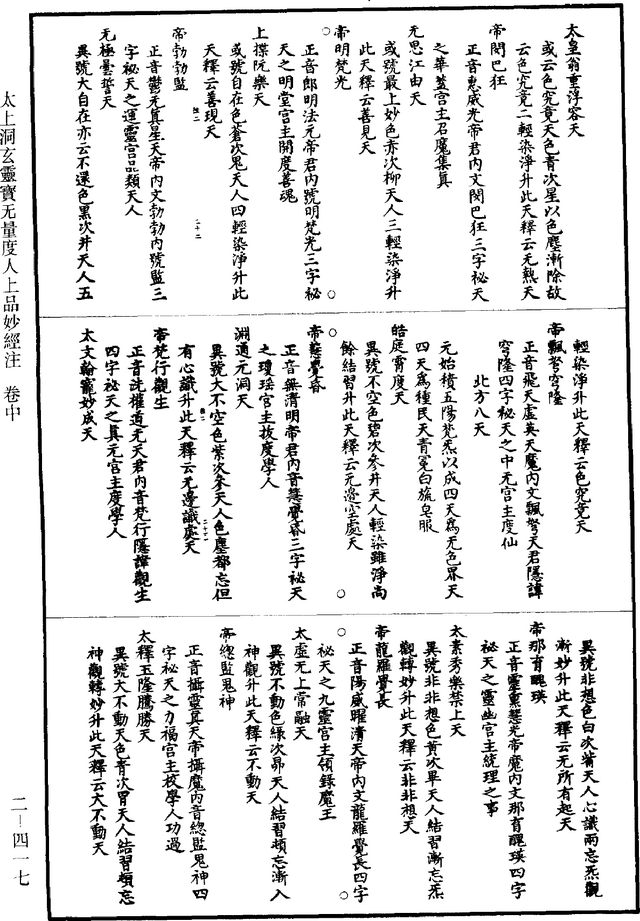 太皇翁重浮容天
或云色究竟天色青次星以色塵漸除故
云色究竟二輕染淨升此天釋云无熱天
帝閔巴狂
正音惠威光帝君內文閔巴狂三字秘天
之華蓋宮主召魔集真
无思江由天
或號最上妙色赤次柳天人三輕染淨升
此天釋云善見天
帝明梵光
正音郎明法元帝君內號明梵光三字秘
天之明堂宮主開度善魂
上揲阮樂天
或號自在色蒼次鬼天人四輕染淨升此
天釋云善現天
帝勃勃監
正音鬱元真星天帝內文勃勃內號監三
字秘天之運靈宮品類天人
无極曇誓天
異號大自在亦云不還色黑次井天人五
輕染淨升此天釋云色究竟天
帝飄弩穹隆
正音飛天虛英天魔內文飄弩天君隱諱
穹隆四字秘天之中元宮主度仙
北方八天
元始積五陽梵炁以成四天為无色界天
四天為種民天青冕白旒皂服
皓庭霄度天
異號不空色碧次參井天人輕染雖淨尚
餘結習升此天釋云元邊空處天
帝慧覺昏
正音無清明帝君內音慧覺昏三字秘天
之瓊瑤宮主拔度學人
淵通元洞天
異號大不空色紫次參天人色塵都忘但
有心識升此天釋云无邊識處天
帝梵行觀生
正音沈權道无天君內音梵行隱諱觀生
四字秘天之真元宮主度學人
太文翰寵妙成天
異號非想色白次觜天人心識兩忘炁觀
漸妙升此天釋云无所有起天
帝那育醜瑛
正音靈熏慧光帝魔內文那育醜瑛四字
秘天之靈幽宮主統理之事
太素秀樂禁上天
異號非非想色黃次畢天人結習漸忘炁
觀轉妙升此天釋云非非想天
帝龍羅覺長
正音陽威躍清天帝內文龍羅覺長四字
秘天之九靈宮主領錄魔王
太虛无上常融天
異號不動色綠次昴天人結習頓忘漸入
神觀升此天釋云不動天
帝總監鬼神
正音攝靈真天帝攝魔內音總監鬼神四
字秘天之力福宮主校學人功過
太釋玉隆騰勝天
異號大不動天色青次胃天人結習頓忘
神觀轉妙升此天釋云大不動天
太上洞玄靈寶无量度人上品妙經注　卷中
二－四一七